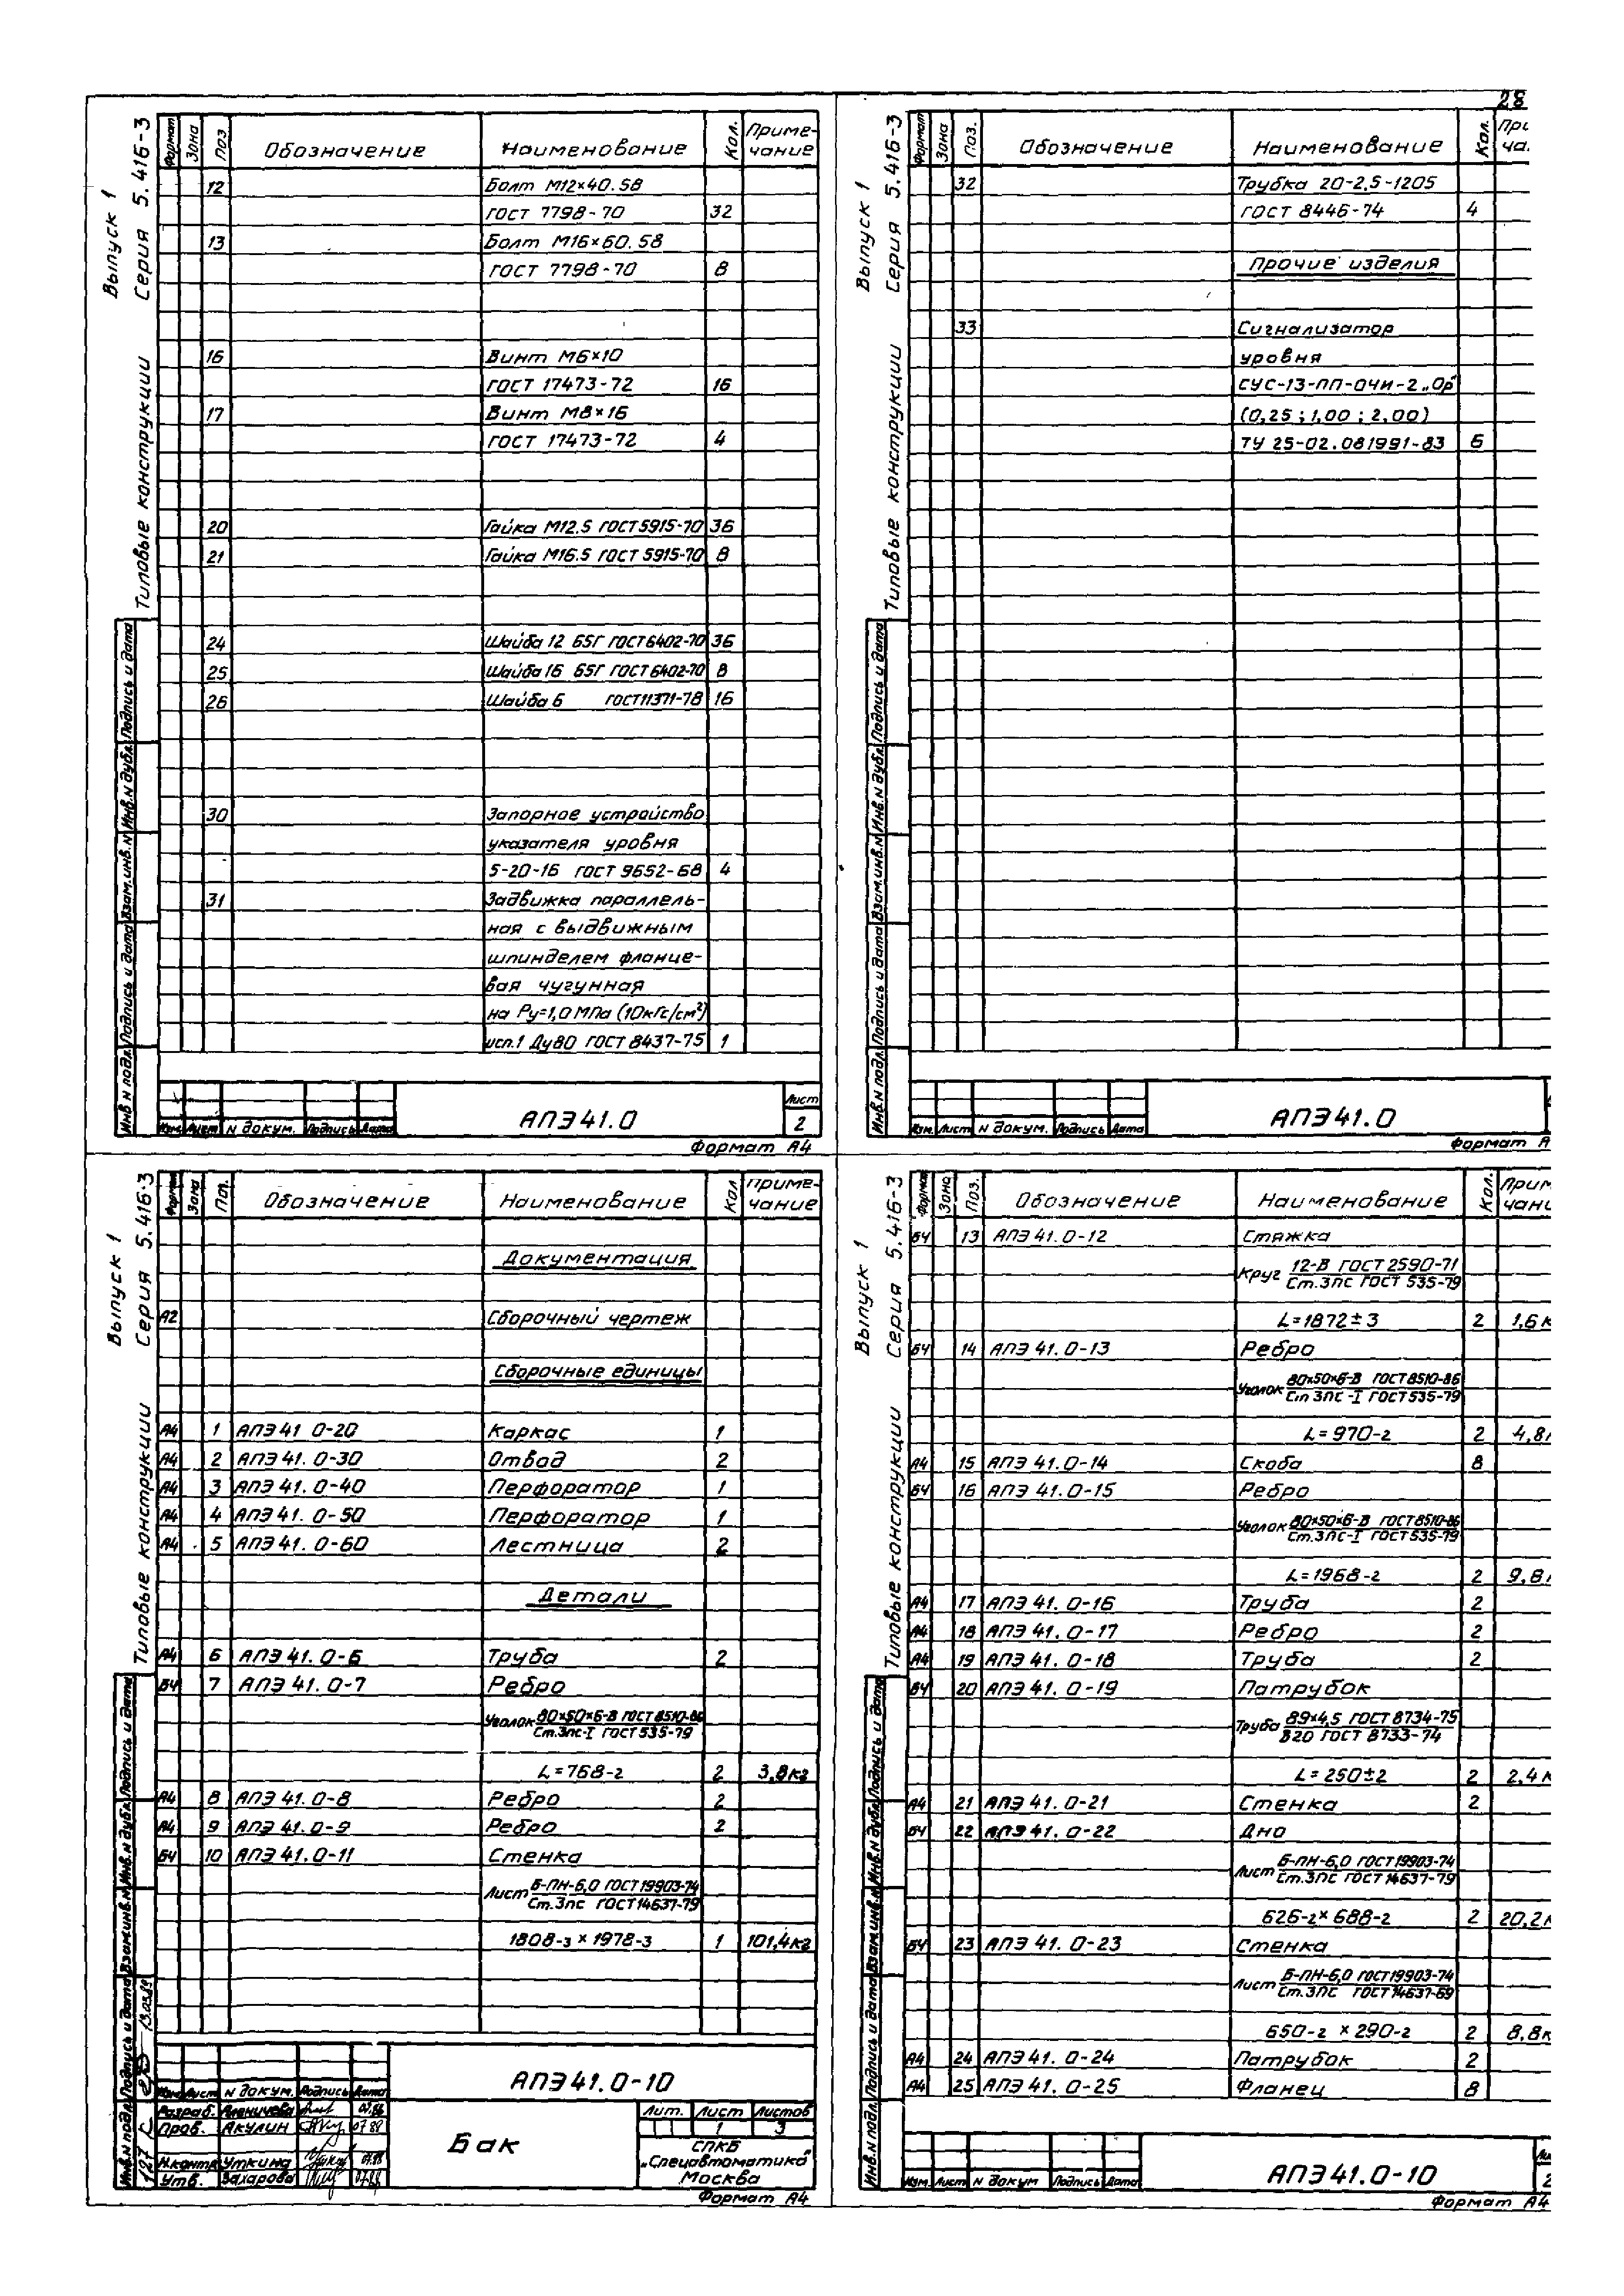 28
Выпуск 1
Серия 5.416-3
Типовые конструкции
Формат Зона Поз. Обозначение Наименование Кол. Приме-
чание
12 Болт М12×40.58
ГОСТ 7798-70 32
13 Болт М16×60.58
ГОСТ 7798-70 8
16 Винт М6×10
ГОСТ 17473-72 16
17 Винт М8×16
ГОСТ 17473-72 4
20 Гайка М12.5 ГОСТ 5915-70 36
21 Гайка М16.5 ГОСТ 5915-70 8
24 Шайба 12 65Г ГОСТ 6402-70 36
25 Шайба 16 65Г ГОСТ 6402-70 8
26 Шайба 6 ГОСТ 11371-78 16
30 Запорное устройство
указателя уровня
5-20-16 ГОСТ 9652-68 4
31 Задвижка параллель-
ная с выдвижным
шпинделем фланце-
вая чугунная
на Ру=1,0 МПа (10кГс/см²)
исп.1 Ду80 ГОСТ 8437-75 1
Инв.N подл. Подпись и дата Взам.инв.N Инв.N дубл. Подпись и дата
Изм. Лист N докум. Подпись Дата
АПЭ41.0
Лист
2
Формат А4
Выпуск 1
Серия 5.416-3
Типовые конструкции
Формат Зона Поз. Обозначение Наименование Кол. При
ча
32 Трубка 20-2,5-1205
ГОСТ 8446-74 4
Прочие изделия
33 Сигнализатор
уровня
СУС-13-ПП-ОЧИ-2 „Ор"
(0,25; 1,00; 2,00)
ТУ 25-02.081991-83 6
Инв.N подл. Подпись и дата Взам.инв.N Инв.N дубл. Подпись и дата
Изм. Лист N докум. Подпись Дата
АПЭ41.0
Формат А
Выпуск 1
Серия 5.416-3
Типовые конструкции
Формат Зона Поз. Обозначение Наименование Кол Приме-
чание
Документация
А2 Сборочный чертеж
Сборочные единицы
А4 1 АПЭ41 0-20 Каркас 1
А4 2 АПЭ41.0-30 Отвод 2
А4 3 АПЭ41.0-40 Перфоратор 1
А4 4 АПЭ41.0-50 Перфоратор 1
А4 5 АПЭ41.0-60 Лестница 2
Детали
А4 6 АПЭ41.0-6 Труба 2
БЧ 7 АПЭ41.0-7 Ребро
Уголок 80×50×6-В ГОСТ 8510-86
Ст.3пс-I ГОСТ 535-79
L=768-2 2 3,8кг
А4 8 АПЭ41.0-8 Ребро 2
А4 9 АПЭ41.0-9 Ребро 2
БЧ 10 АПЭ41.0-11 Стенка
Лист Б-ПН-6,0 ГОСТ 19903-74
Ст.3пс ГОСТ 14637-79
1808-3 × 1978-3 1 101,4кг
Инв.N подл. Подпись и дата Взам.инв.N Инв.N дубл. Подпись и дата
Изм. Лист N докум. Подпись Дата
Разраб. 07.88
Пров. Акулин 07.88
Н.контр. Уткина 07.88
Утв. Захарова 07.88
АПЭ41.0-10
Бак
Лит. Лист Листов
1 3
СПКБ
„Спецавтоматика"
Москва
Формат А4
Выпуск 1
Серия 5.416-3
Типовые конструкции
Формат Зона Поз. Обозначение Наименование Кол. Прим
чани
БЧ 13 АПЭ41.0-12 Стяжка
Круг 12-В ГОСТ 2590-71
Ст.3пс ГОСТ 535-79
L=1872±3 2 1,6к
БЧ 14 АПЭ41.0-13 Ребро
Уголок 80×50×6-В ГОСТ 8510-86
Ст 3пс-I ГОСТ 535-79
L=970-2 2 4,8
А4 15 АПЭ41.0-14 Скоба 8
БЧ 16 АПЭ41.0-15 Ребро
Уголок 80×50×6-В ГОСТ 8510-86
Ст.3пс-I ГОСТ 535-79
L=1968-2 2 9,8
А4 17 АПЭ41.0-16 Труба 2
А4 18 АПЭ41.0-17 Ребро 2
А4 19 АПЭ41.0-18 Труба 2
БЧ 20 АПЭ41.0-19 Патрубок
Труба 89×4,5 ГОСТ 8734-75
В20 ГОСТ 8733-74
L=250±2 2 2,4к
А4 21 АПЭ41.0-21 Стенка 2
БЧ 22 АПЭ41.0-22 Дно
Лист Б-ПН-6,0 ГОСТ 19903-74
Ст.3пс ГОСТ 14637-79
626-2 × 688-2 2 20,2к
БЧ 23 АПЭ41.0-23 Стенка
Лист Б-ПН-6,0 ГОСТ 19903-74
Ст.3пс ГОСТ 14637-69
650-2 × 290-2 2 8,8к
А4 24 АПЭ41.0-24 Патрубок 2
А4 25 АПЭ41.0-25 Фланец 8
Инв.N подл. Подпись и дата Взам.инв.N Инв.N дубл. Подпись и дата
Изм. Лист N докум Подпись Дата
АПЭ41.0-10
Формат А4